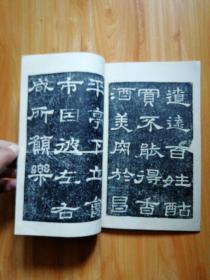 遼遠百姓酤
買不能得香
酒美肉於昌
平亭下立會
市因彼左右
咸所願樂